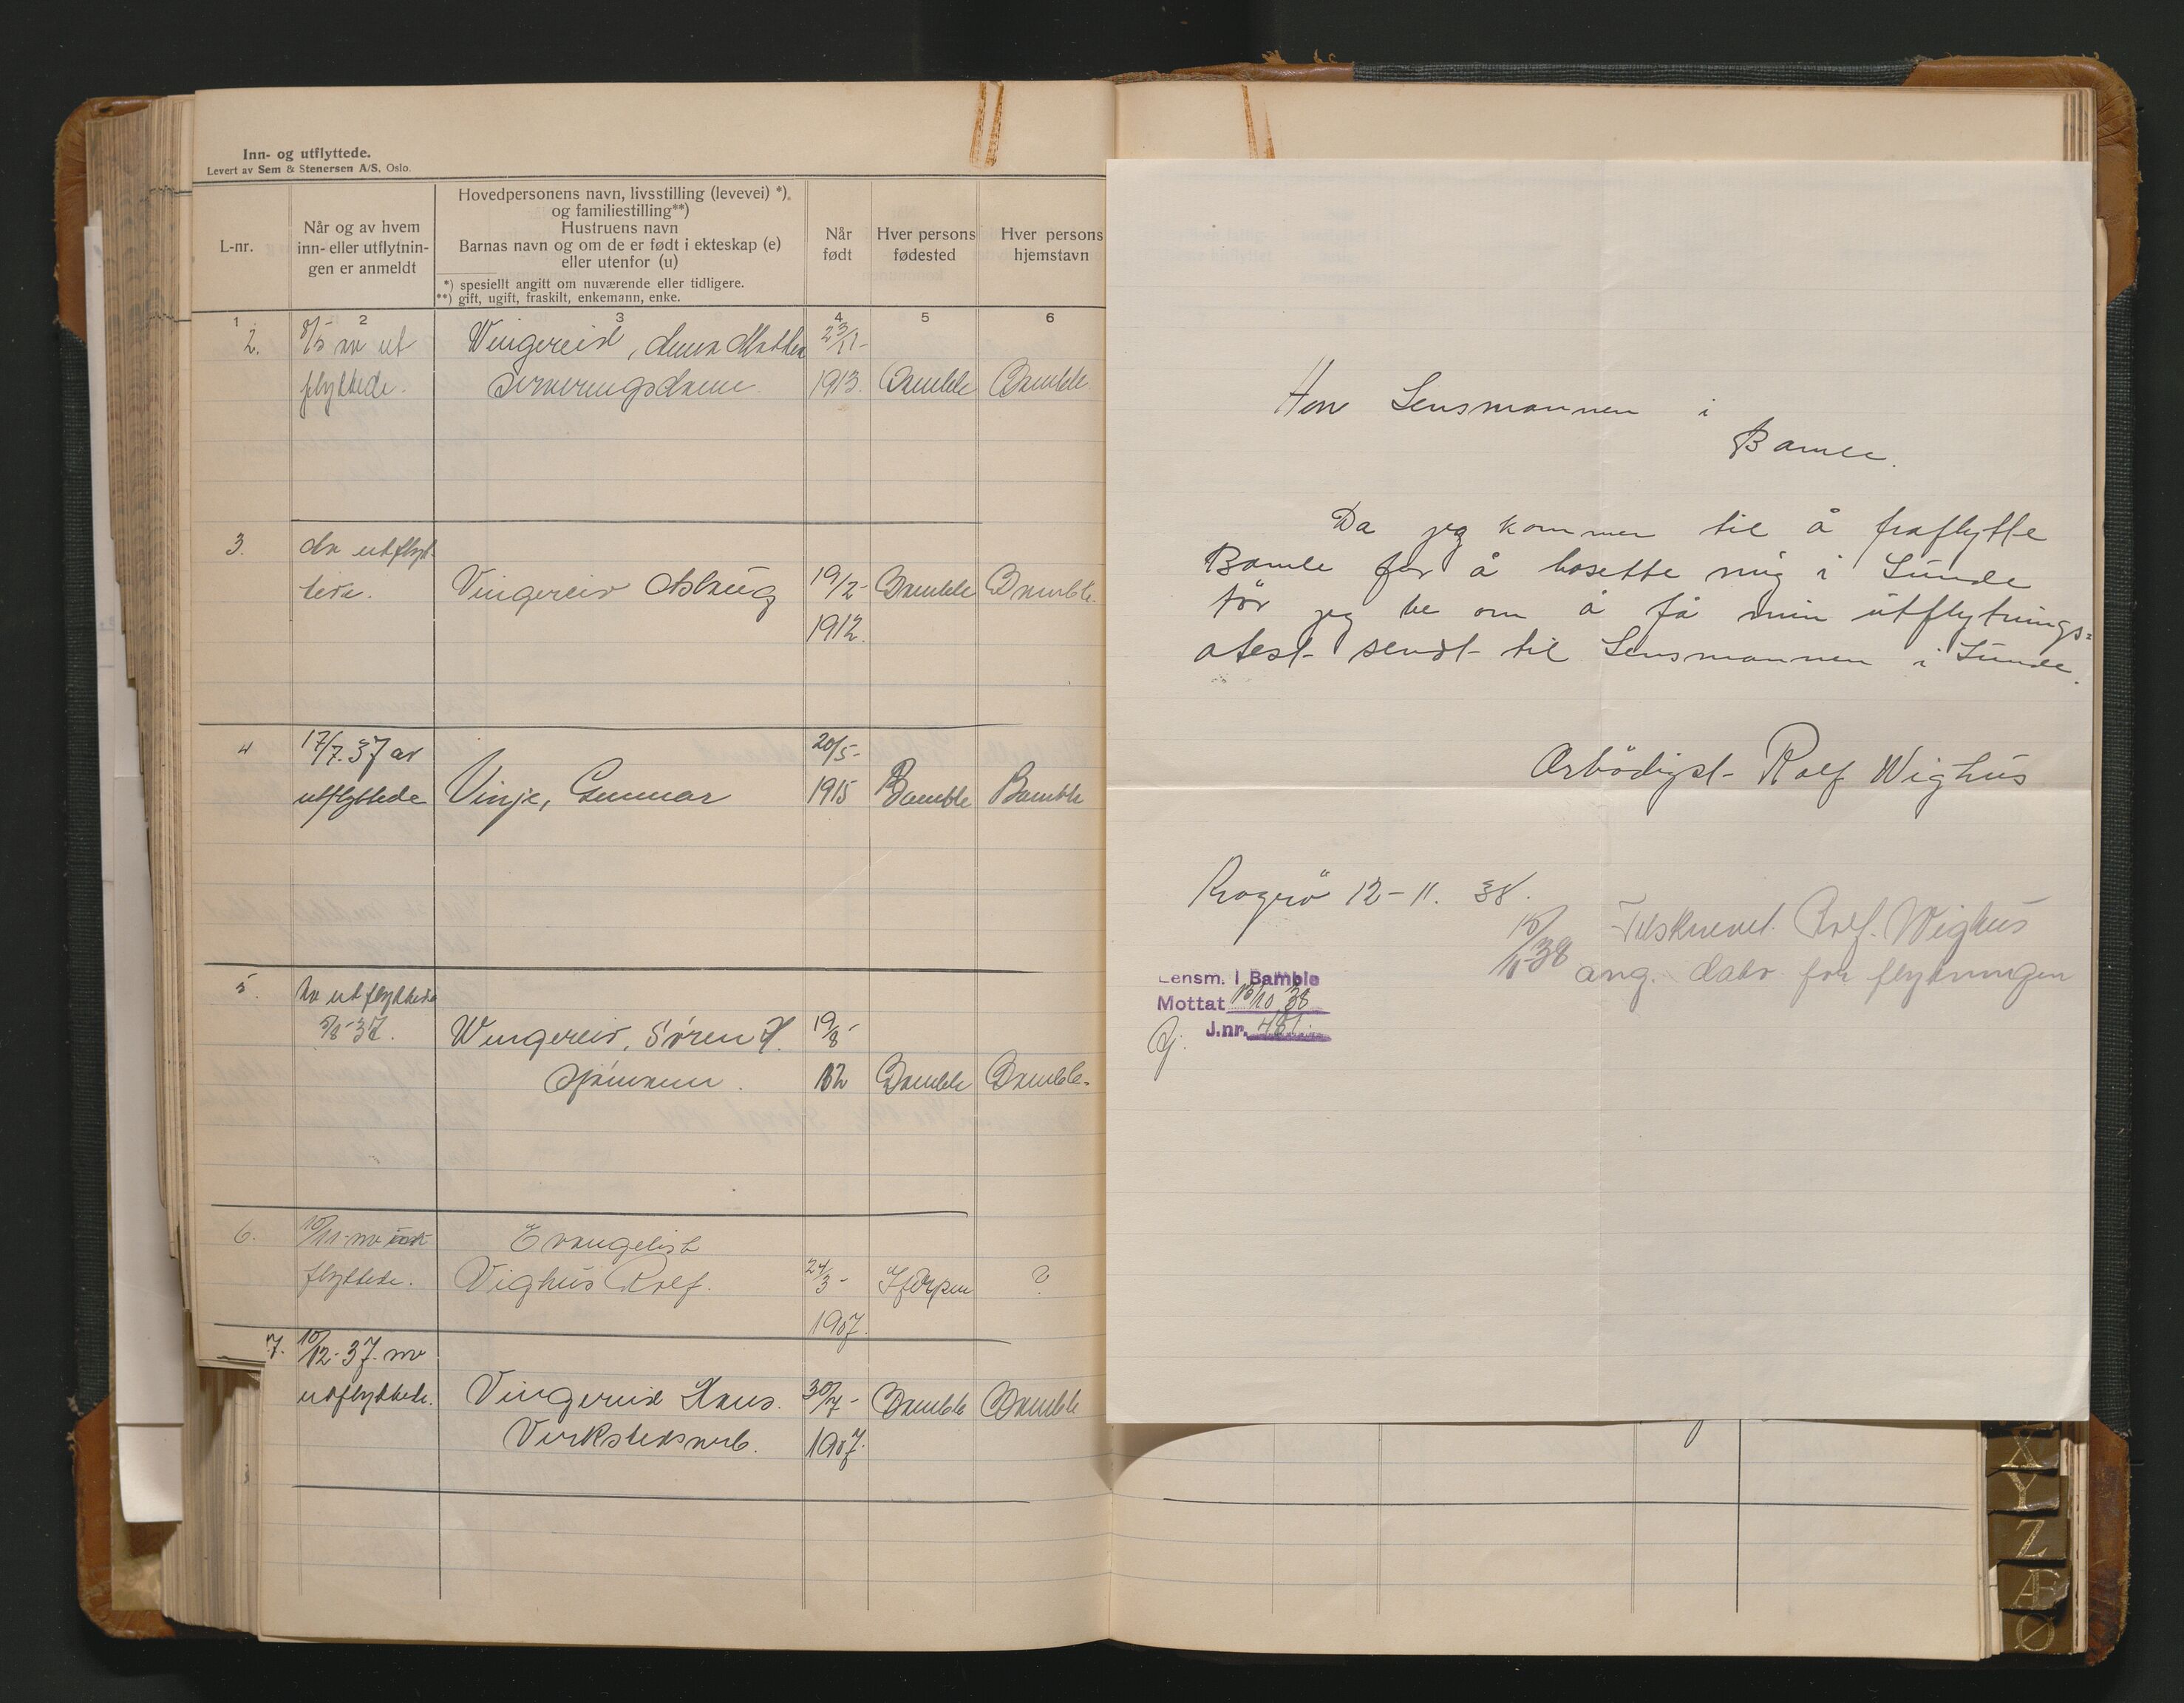 Inn- og utflyttede.
Levert av Sem & Stenersen A/S, Oslo.
L-nr.
Når og av hvem
inn- eller utflytnin-
gen er anmeldt
Hovedpersonens navn, livsstilling (levevei) *),
og familiestilling**)
Hustruens navn
Barnas navn og om de er født i ekteskap (e)
eller utenfor (u)
*) spesiellt angitt om nuværende eller tidligere.
**) gift, ugift, fraskilt, enkemann, enke.
Når
født
Hver persons
fødested
Hver persons
hjemstavn
1 2 3 4 5 6
2. 8/5 av ut Wingereid, Anna Mathea 23/11-
flyttede. Serveringsdame. 1913. Bamble Bamble
3. av utflyt-
tede. Vingereid Aslaug 19/2- Bamble Bamble.
1912.
4 17/7.37 av 20/5-
utflyttede Vinje, Gunnar 1915 Bamble Bamble
5. Av utflyttede
Wingereid, Søren H. 19/8-
Sjømann. Bamble Bamble.
6. Evangelist
flyttede. Vighus Rolf. 24/3- ?
1907.
7. 10/12-37. av
utflyttede. Vingereid Hans. 30/7- Bamble Bamble
Verkstedsarb. 1907.
Herr Lensmannen i
Bamle.
Da jeg kommer til å fraflytte
Bamle for å bosette mig i Lunde
tør jeg be om å få min utflytnings=
atest sendt til Lensmannen i Lunde.
Ærbödigst Rolf Wighus
12-11. 38.
Tilskrevet Rolf. Wighus
ang. dato for flytningen
Lensm. i Bamble
Mottat 15/10 38
J.nr.
X
Y
Z
Æ
Ø